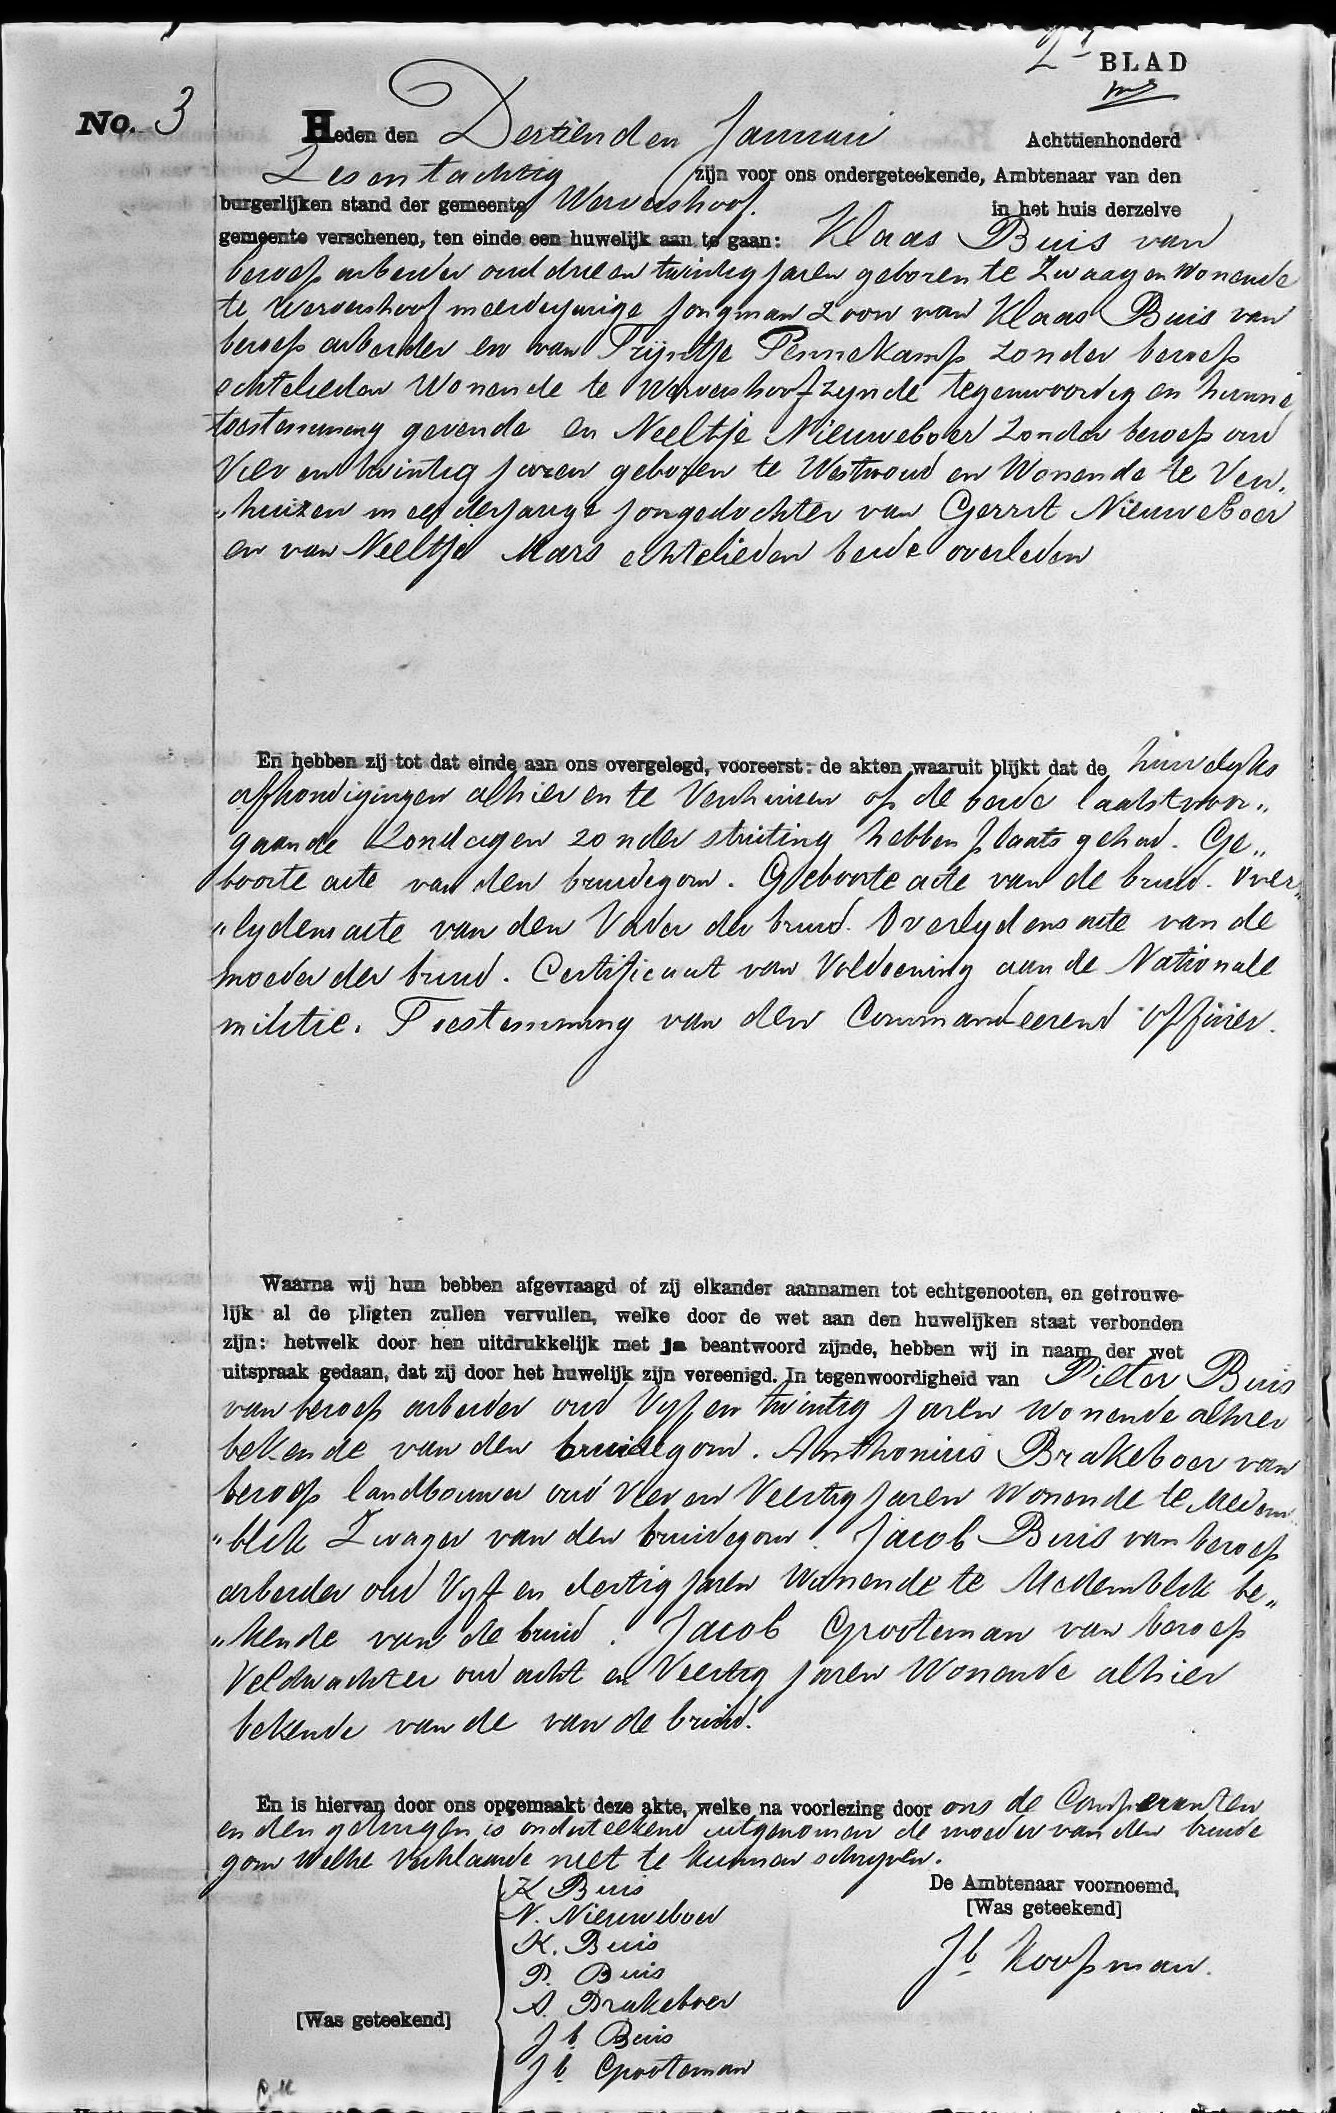 2e BLAD
No. 3
Heden den Dertienden Januari Achttienhonderd
Zes en tachtig zijn voor ons ondergeteekende, Ambtenaar van den
burgerlijken stand der gemeente Wervershoof. in het huis derzelve
gemeente verschenen, ten einde een huwelijk aan te gaan: Klaas Buis van
beroep arbeider oud drie en twintig jaren geboren te Zwaag en Wonende
te Wervershoof meerderjarige jongman Zoon van Klaas Buis van
beroep arbeider en van Trijntje Pennekamp zonder beroep
echtelieden Wonende te Wervershoof zynde tegenwoordig en hunne
toestemming gevende en Neeltje Nieuweboer Zonder beroep oud
Vier en twintig jaren geboren te Westwoud en Wonende te Ven„
„huizen meerderjarige jongedochter van Gerrit Nieuweboer
en van Neeltje Mars echtelieden beide overleden
En hebben zij tot dat einde aan ons overgelegd, vooreerst: de akten waaruit blijkt dat de huwelyks
afkondigingen alhier en te Venhuizen op de beide laatstvoor„
gaande Zondagen zonder stuiting hebben plaats gehad. Ge„
boorte acte van den bruidegom. Geboorte acte van de bruid. Over„
„lydens acte van den Vader der bruid. Overlydens acte van de
moeder der bruid. Certificaat van Voldoening aan de Nationale
militie. Toestemming van den Commandeerend officier.
Waarna wij hun hebben afgevraagd of zij elkander aannamen tot echtgenooten, en getrouwe-
lijk al de pligten zullen vervullen, welke door de wet aan den huwelijken staat verbonden
zijn: hetwelk door hen uitdrukkelijk met ja beantwoord zijnde, hebben wij in naam der wet
uitspraak gedaan, dat zij door het huwelijk zijn vereenigd. In tegenwoordigheid van Pieter Buis
van beroep arbeider oud Vyf en twintig jaren Wonende alhier
bekende van den bruidegom. Anthonius Brakeboer van
beroep landbouwer oud Vier en Veertig jaren Wonende te Medem„
„blik Zwager van den bruidegom. Jacob Buis van beroep
arbeider oud Vyf en dertig jaren Wonende te Medemblik be„
„kende van de bruid. Jacob Grooteman van beroep
Veldwachter oud acht en Veertig jaren Wonende alhier
bekende van de van de bruid.
En is hiervan door ons opgemaakt deze akte, welke na voorlezing door ons de Comparanten
en den getuigen is onderteekend uitgenomen de moeder van den bruide
gom welke verklaarde niet te kunnen schryven.
De Ambtenaar voornoemd,
[Was geteekend]
Jb Koopman.
[Was geteekend]
K Buis
N. Nieuweboer
K. Buis
P. Buis
A. Brakeboer
Jb Buis
Jb Grooteman